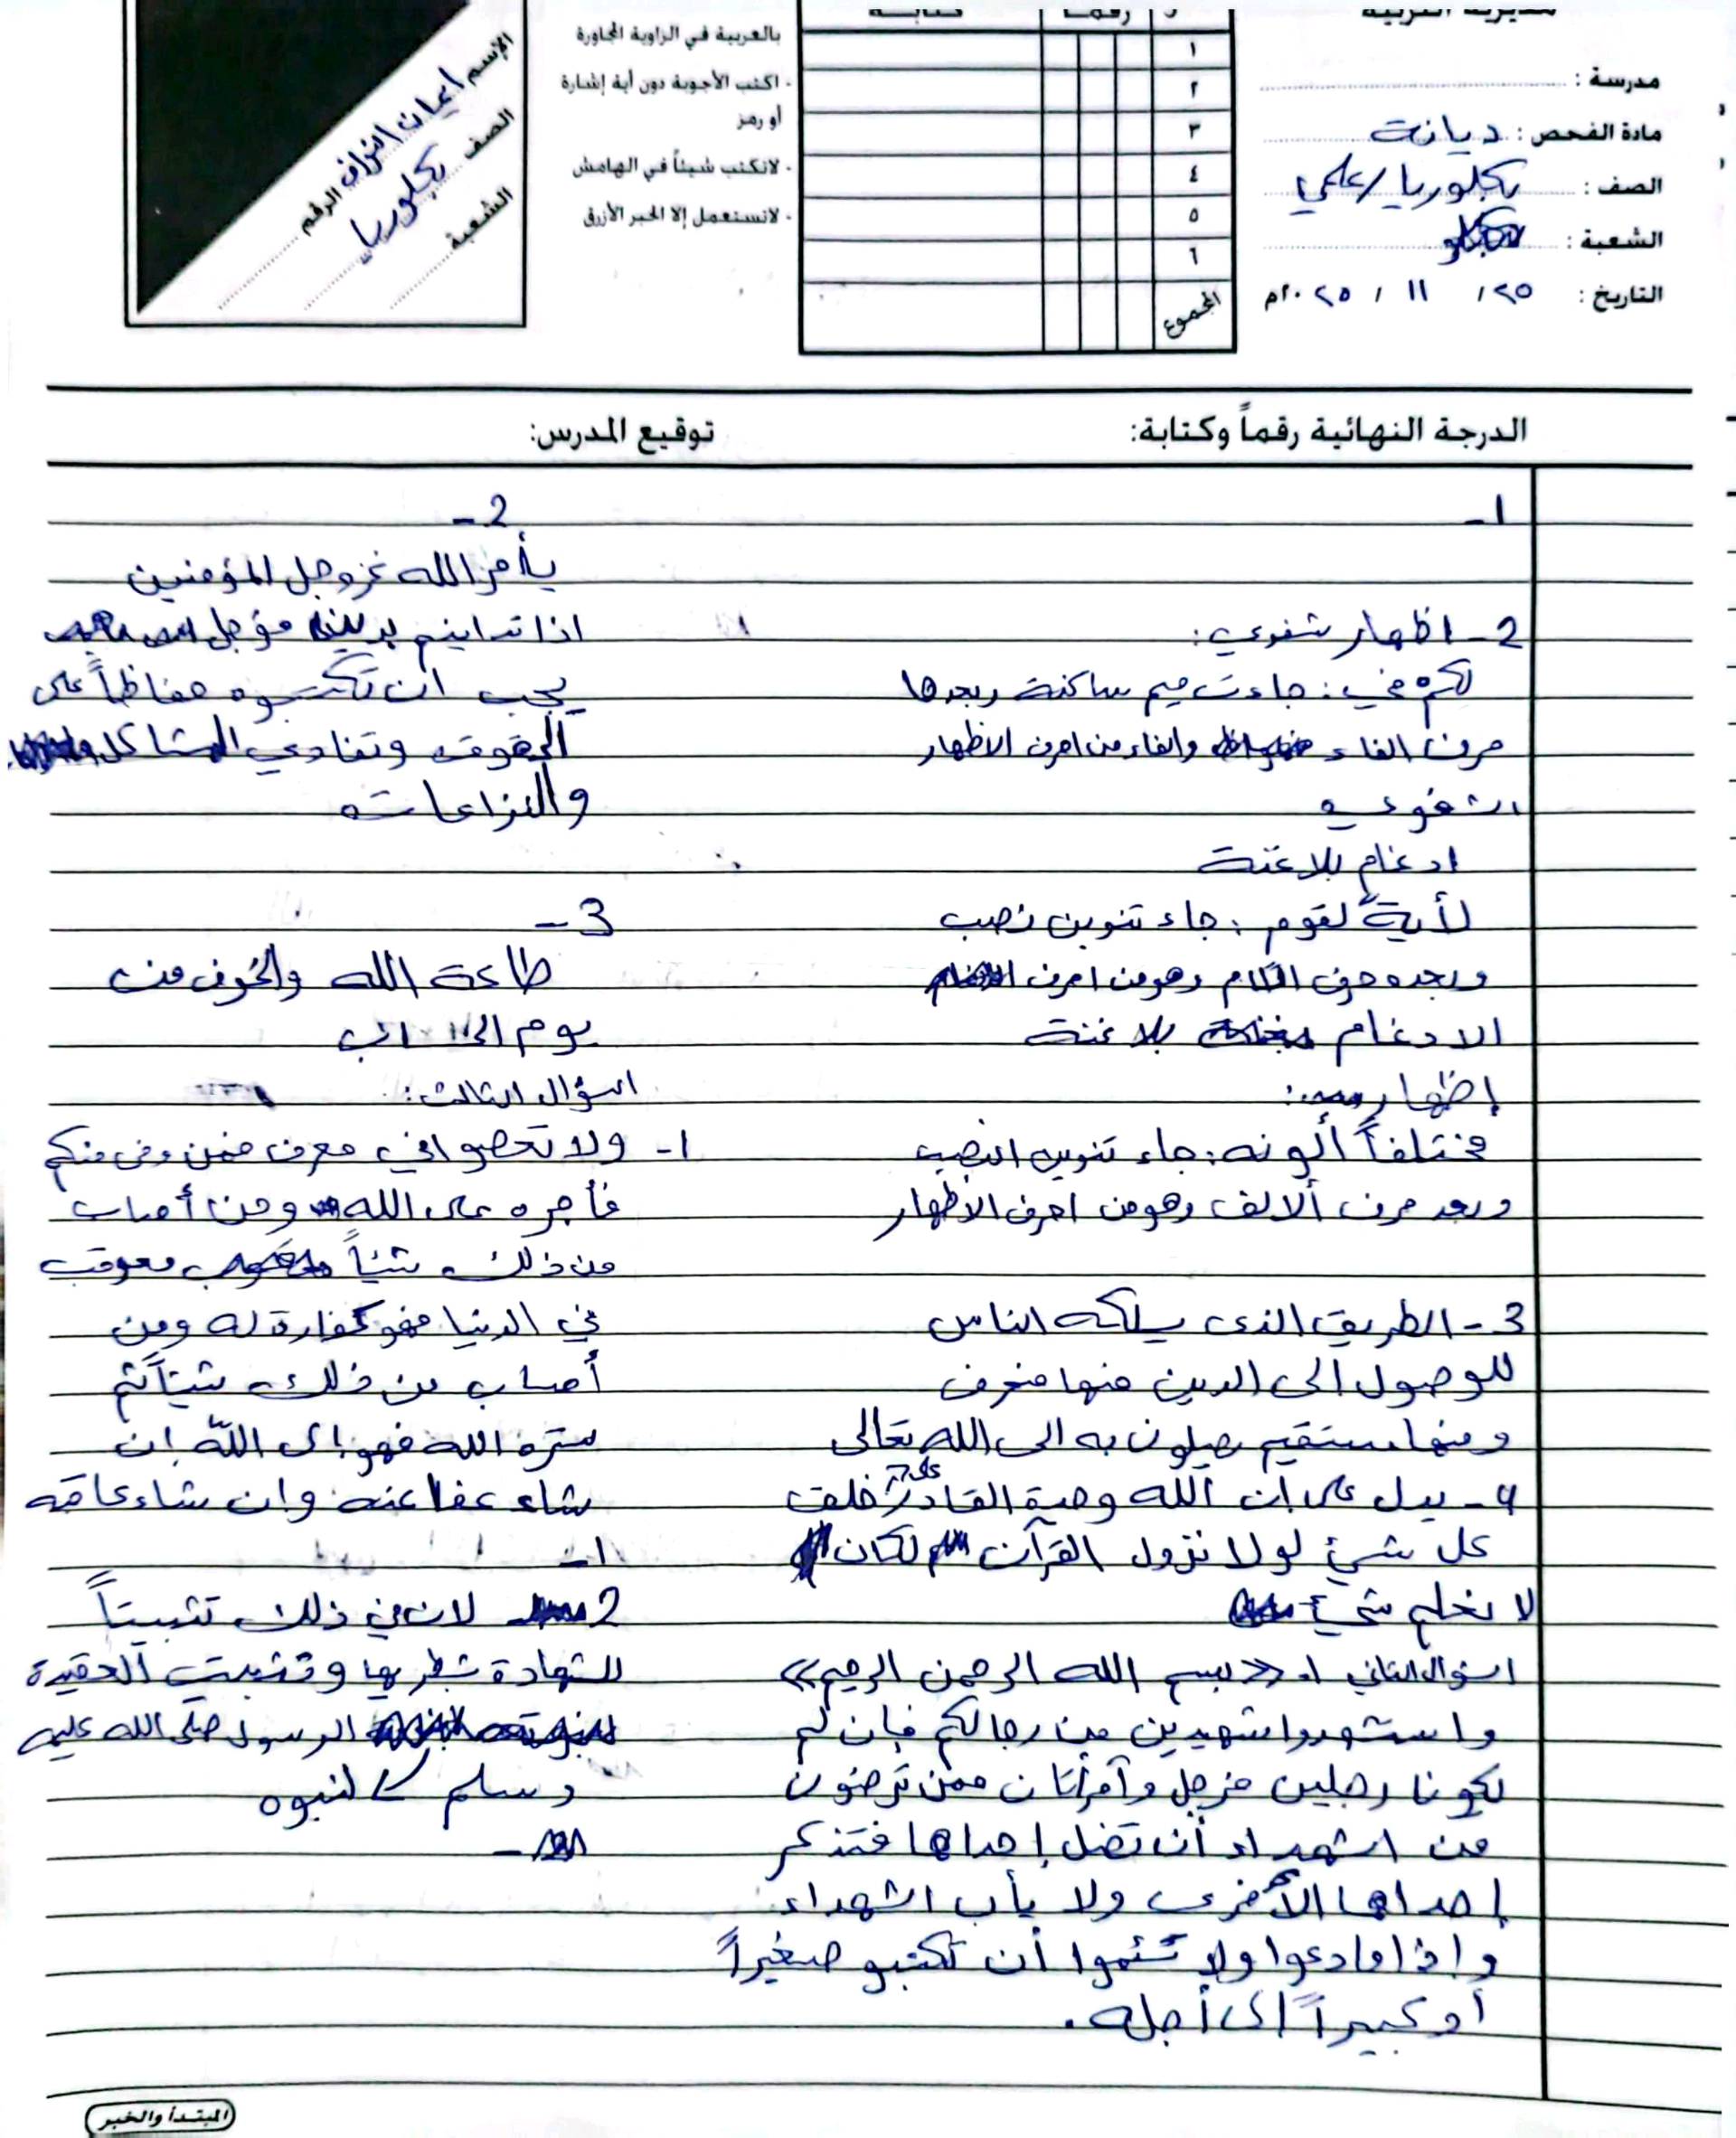 مديرية التربية
مدرسة :
مادة الفحص : ديانة
الصف : بكلوريا / علمي
الشعبة :
التاريخ : ٢٥ / ١١ / ٢٠٢٥م
رقماً كتابة
١
٢
٣
٤
٥
٦
المجموع
بالعربية في الزاوية المجاورة
- اكتب الأجوبة دون أية إشارة
أو رمز
- لاتكتب شيئاً في الهامش
- لاتستعمل إلا الحبر الأزرق
الإسم ايمان الرقم
الصف بكلوريا
الشعبة
الدرجة النهائية رقماً وكتابة:
توقيع المدرس:
1-
2- اظهار شفوي:
لكم في: جاءت ميم ساكنة وبعدها
حرف الفاء والفاء من احرف الاظهار
الشفوي
ادغام بلا غنة
لأيةً لقوم : جاء تنوين نصب
وبعده حرف اللام وهو من احرف
الادغام بلا غنة
إظهار :
مختلفاً ألونه: جاء تنوين النصب
وبعد حرف ألالف وهو من احرف الاظهار
3- الطريق الذي يسلكه الناس
للوصول الى الدين منها منحرف
ومنها مستقيم يصلون به الى الله تعالى
4- يدل على ان الله وحدة القادر على خلق
كل شيئ لولا نزول القرآن لكان
لا نعلم شيئ
السؤال الثاني 1- «بسم الله الرحمن الرحيم»
واستشهدوا شهيدين من رجالكم فإن لم
يكونا رجلين فرجل وآمرأتان ممن ترضون
من الشهداء أن تضل إحداها فتذكر
إحداها الأخرى ولا يأب الشهداء
واذا ما دعوا ولا تسئموا أن تكتبو صغيراً
أو كبيراً الى أجله.
2-
يأمر الله عزوجل المؤمنين
اذا تداينم بدين مؤجل
يجب ان تكتبوه حفاظاً على
الحقوق وتفادي المشاكل
والنزاعات
3-
طاعة الله والخوف من
يوم الحساب
السؤال الثالث:
1- ولا تعصوا في معرف فمن وفى منكم
فأجره على الله ومن أصاب
من ذلك شئياً معوقب
في الدنيا فهو كفارة له ومن
أصاب من ذلك شيئاً ثم
ستره الله فهو إلى اللّه إن
شاء عفا عنه وان شاء عاقه
1-
2 لان في ذلك تثبيتاً
للشهادة شطريها وتثبيت العقيدة
الرسول صلى الله عليه
وسلم كالنبوه
المبتدأ والخبر